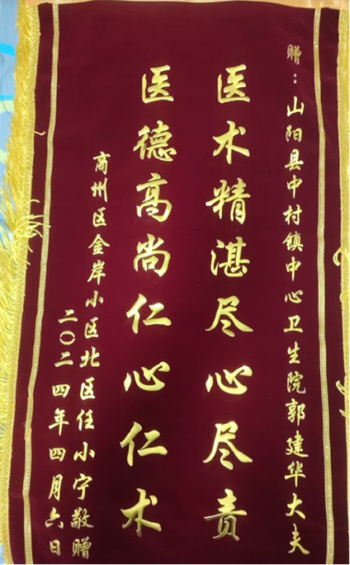 赠：山阳县中村镇中心卫生院郭建华大夫
医术精湛尽心尽责
医德高尚仁心仁术
商州区金岸小区北区任小宁敬赠
二〇二四年四月六日